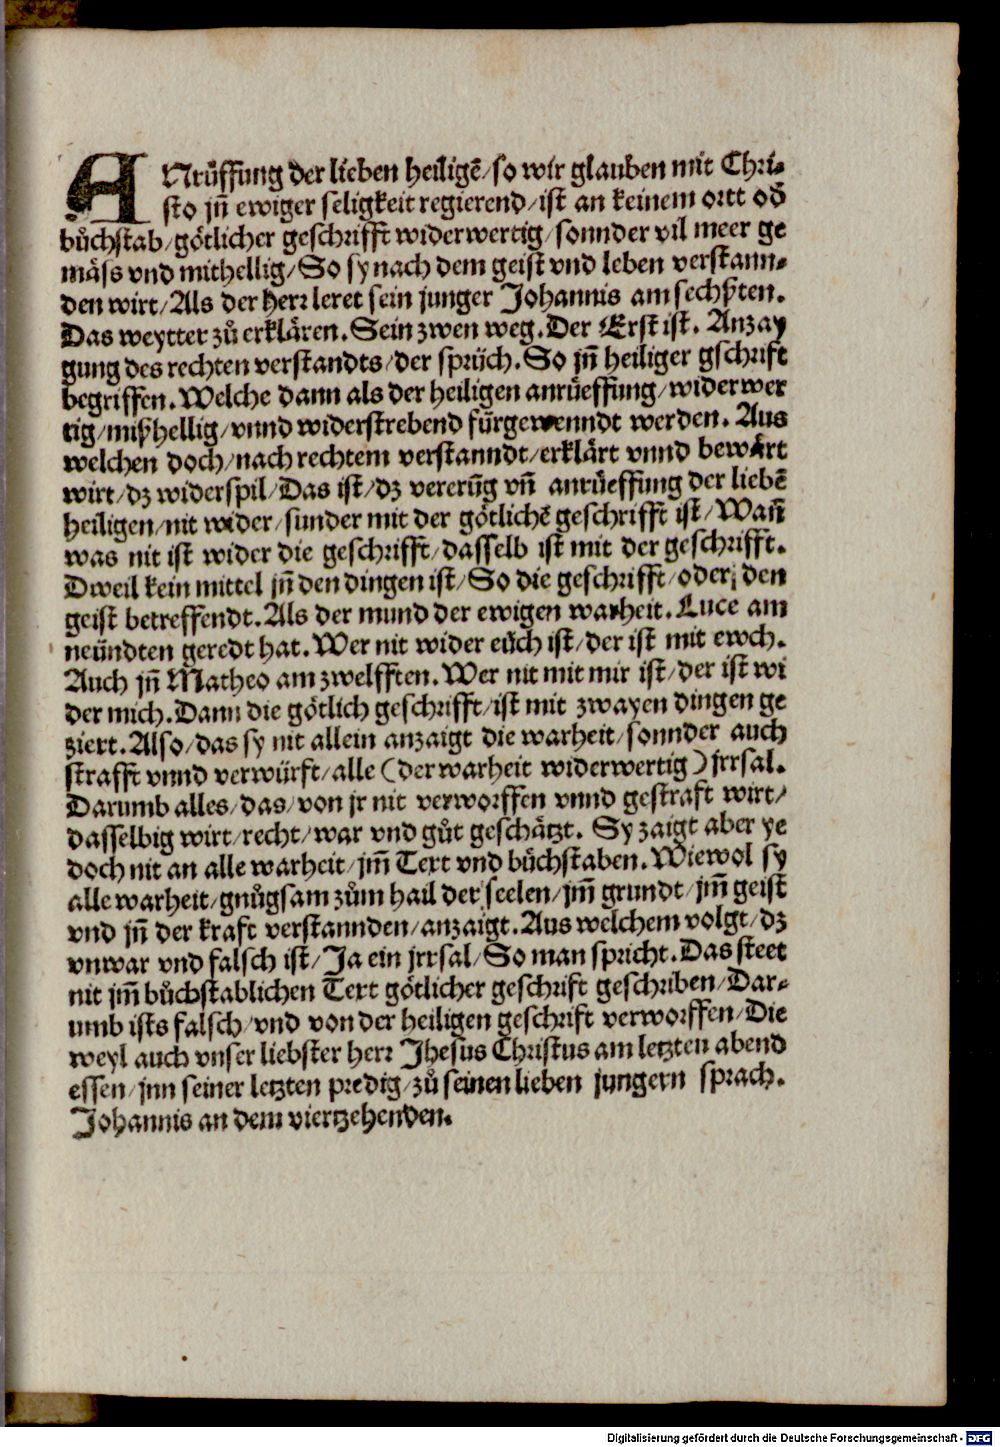 ANrüffung der lieben heiligē/so wir glauben mit Chri-
sto jn̄ ewiger seligkeit regierend/ist an keinem ortt od̄
bůchstab/götlicher geschrifft widerwertig/sonnder vil meer ge
mäss vnd mithellig/So sy nach dem geist vnd leben verstann-
den wirt/Als der herr leret sein junger Johannis am sechßten.
Das weytter zů erklären. Sein zwen weg. Der Erst ist. Anzay
gung des rechten verstandts/der sprüch. So jn̄ heiliger gschrift
begriffen. Welche dann als der heiligen anrüeffung/widerwer
tig/mißhellig/vnnd widerstrebend fürgewenndt werden. Aus
welchen doch/nach rechtem verstanndt/erklärt vnnd bewärt
wirt/dz widerspil/Das ist/dz vererūg vn̄ anrüeffung der liebē
heiligen/nit wider/sunder mit der götlichē geschrifft ist/Wan̄
was nit ist wider die geschrifft/dasselb ist mit der geschrifft.
Dweil kein mittel jn̄ den dingen ist/So die geschrifft/oder den
geist betreffendt. Als der mund der ewigen warheit. Luce am
neündten geredt hat. Wer nit wider eüch ist/der ist mit ewch.
Auch jn̄ Matheo am zwelfften. Wer nit mit mir ist/der ist wi
der mich. Dann die götlich geschrifft/ist mit zwayen dingen ge
ziert. Also/das sy nit allein anzaigt die warheit/sonnder auch
strafft vnnd verwürft/alle (der warheit widerwertig) jrrsal.
Darumb alles/das/von jr nit verworffen vnnd gestraft wirt/
dasselbig wirt/recht/war vnd gůt geschätzt. Sy zaigt aber ye
doch nit an alle warheit/jm̄ Text vnd bůchstaben. Wiewol sy
alle warheit/gnůgsam zům hail der seelen/jm̄ grundt/jm̄ geist
vnd jn̄ der kraft verstannden/anzaigt. Aus welchem volgt/dz
vnwar vnd falsch ist/Ja ein jrrsal/So man spricht. Das steet
nit jm̄ bůchstablichen Text götlicher geschrift geschriben/Dar-
umb ists falsch/vnd von der heiligen geschrift verworffen/Die
weyl auch vnser liebster herr Jhesus Christus am letzten abend
essen/jnn seiner letzten predig/zů seinen lieben jungern sprach.
Johannis an dem viertzehenden.
Digitalisierung gefördert durch die Deutsche Forschungsgemeinschaft - DFG